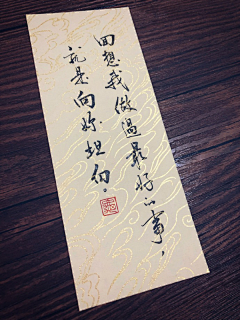 回想我做過最好的事，
就是向妳坦白。